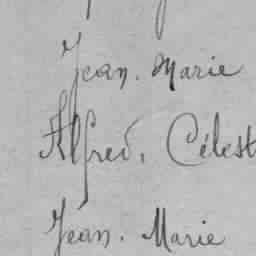 Jean. Marie
Alfred, Célest
Jean. Marie